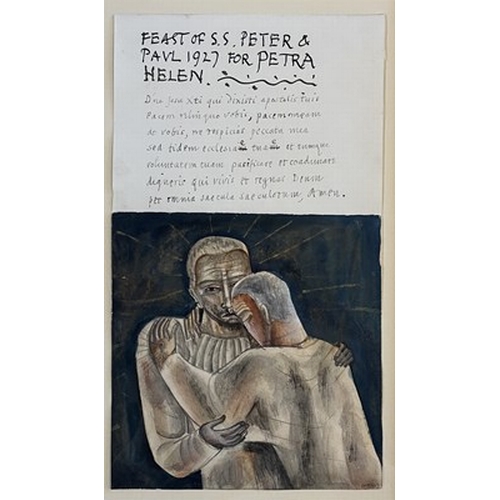 FEAST OF S.S. PETER &
PAVL 1927 FOR PETRA
HELEN.
Dne Jesu Xti qui dixisti apostolis tuis
Pacem relinquo vobis, pacem meam
do vobis, ne respicias peccata mea
sed fidem ecclesiæ tuæ et eamque
voluntatem tuam pacificare et coadunare
digneris qui vivis et regnas Deum
per omnia saecula saeculorum, Amen.